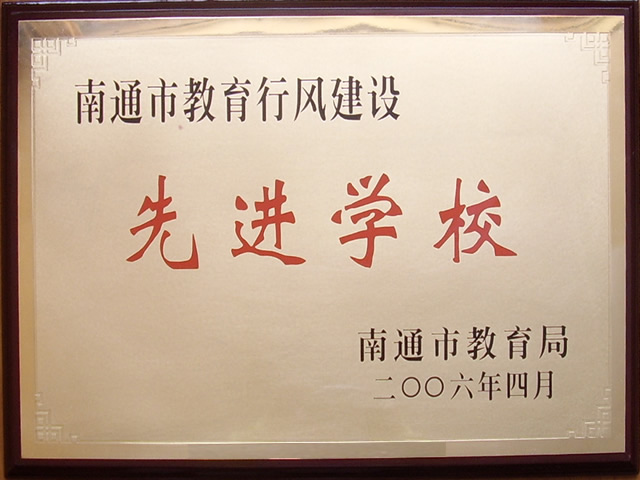 南通市教育行风建设
先进学校
南通市教育局
二〇〇六年四月